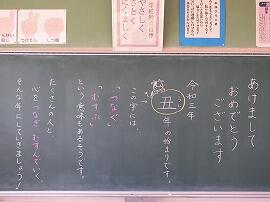 あけまして
おめでとう
ございます
令和三年
丑年の始まりです。
この字には、
「つなぐ」
「むすぶ」
という意味もあるそうです。
たくさんの人と、
心をつなぎ、むすんでいく、
そんな年にしていきましょう!